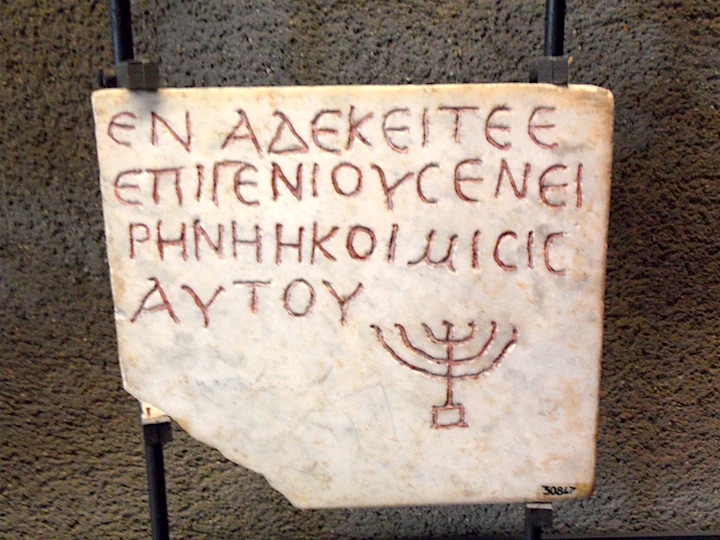 ΕΝ ΑΔΕΚΕΙΤΕΕ
ΕΠΙΓΕΝΙΟΥϹΕΝΕΙ
ΡΗΝΗΗΚΟΙΜΙϹΙϹ
ΑΥΤΟΥ
30847